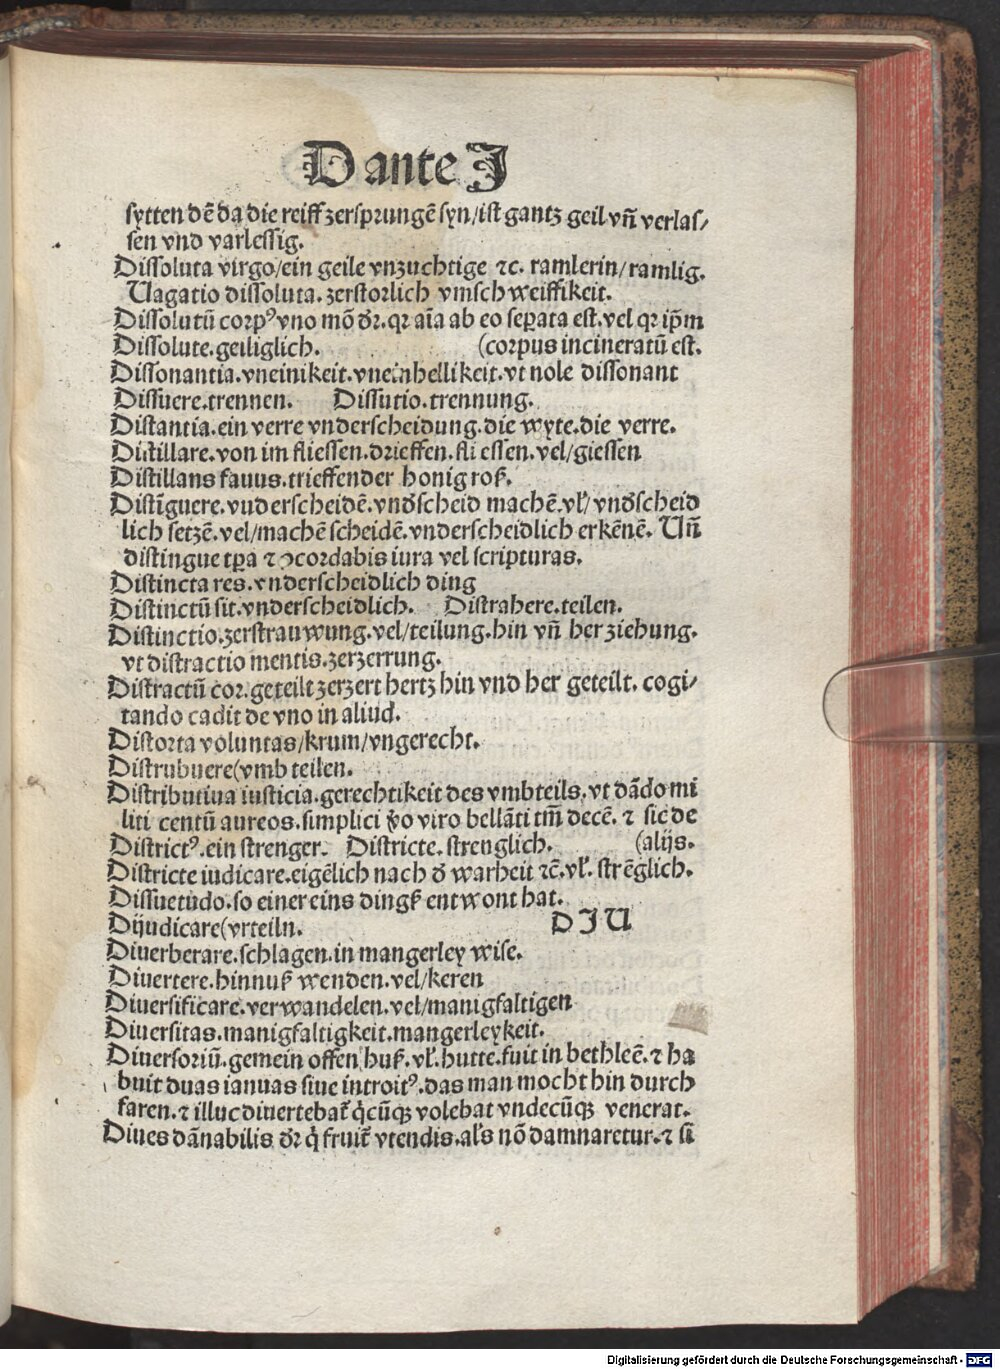 Dante J
sytten dē da die reiff zersprungē syn/ist gantz geil vñ verlas/
sen vnd varlessig.
Dissoluta virgo/ein geile vnzuchtige ⁊c. ramlerin/ramlig.
Uagatio dissoluta.zerstorlich vmschweiffikeit.
Dissolutū corpꝰ vno mō dr̄. qꝛ aīa ab eo seꝑata est.vel qꝛ ip̄m
Dissolute.geiliglich. (corpus incineratū est.
Dissonantia.vneinikeit.vneinhellikeit.vt nole dissonant
Dissuere.trennen. Dissutio.trennung.
Distantia.ein verre vnderscheidung.die wyte.die verre.
Distillare.von im fliessen.drieffen.fliessen.vel/giessen
Distillans fauus.trieffender honig roß.
Distīguere.vnderscheidē.vnd̓scheid machē.vl̓/vnd̓scheid
lich setzē.vel/machē scheidē.vnderscheidlich erkēnē. Uñ
distingue tꝑa ⁊ ꝯcordabis iura vel scripturas.
Distincta res.vnderscheidlich ding
Distinctū sit.vnderscheidlich. Distrahere.teilen.
Distinctio.zerstrauwung.vel/teilung.hin vñ herziehung.
vt distractio mentis.zerzerrung.
Distractū cor.geteilt zerzert hertz hin vnd her geteilt. cogi/
tando cadit de vno in aliud.
Distorta voluntas/krum/vngerecht.
Distrubuere(vmb teilen.
Distributiua iusticia.gerechtikeit des vmbteils.vt dādo mi
liti centū aureos.simplici v̓o viro bellāti tm̄ decē. ⁊ sic de
Districtꝰ.ein strenger. Districte.strenglich. (alijs.
Districte iudicare.eigēlich nach d̓ warheit ⁊c̄.vl̓. strēglich.
Dissuetudo.so einer eins dingß entwont hat.
Dijudicare(vrteiln. D J U
Diuerberare.schlagen.in mangerley wise.
Diuertere.hinnuß wenden.vel/keren
Diuersificare.verwandelen.vel/manigfaltigen
Diuersitas.manigfaltigkeit.mangerleykeit.
Diuersoriū.gemein offen huß.vl̓.hutte.fuit in bethleē.⁊ ha
buit duas ianuas siue introitꝰ.das man mocht hin durch
faren.⁊ illuc diuertebat̄ q̓cūqꝫ volebat vndecūqꝫ venerat.
Diues dānabilis dr̄ q̓ fruit̄ vtendis.al̓s nō damnaretur.⁊ si
Digitalisierung gefördert durch die Deutsche Forschungsgemeinschaft - DFG